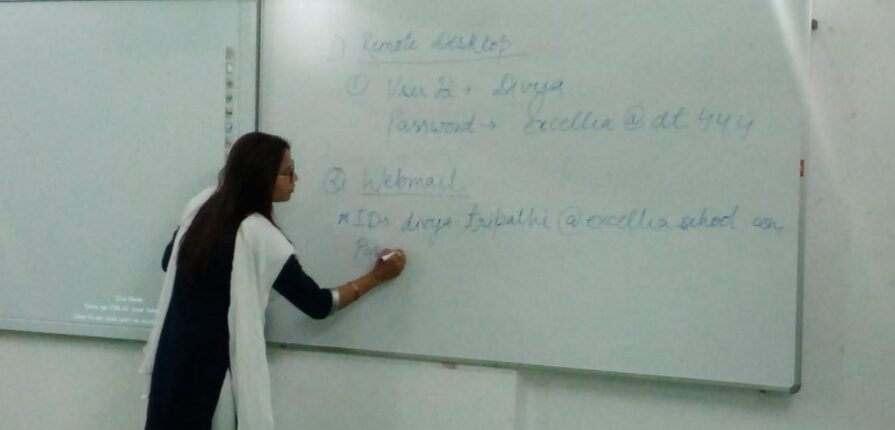 1) Remote Desktop
① User Id → Divya
Password → excellia@dt444
② Webmail
* ID → divya tripathi@excellia school com
Pas